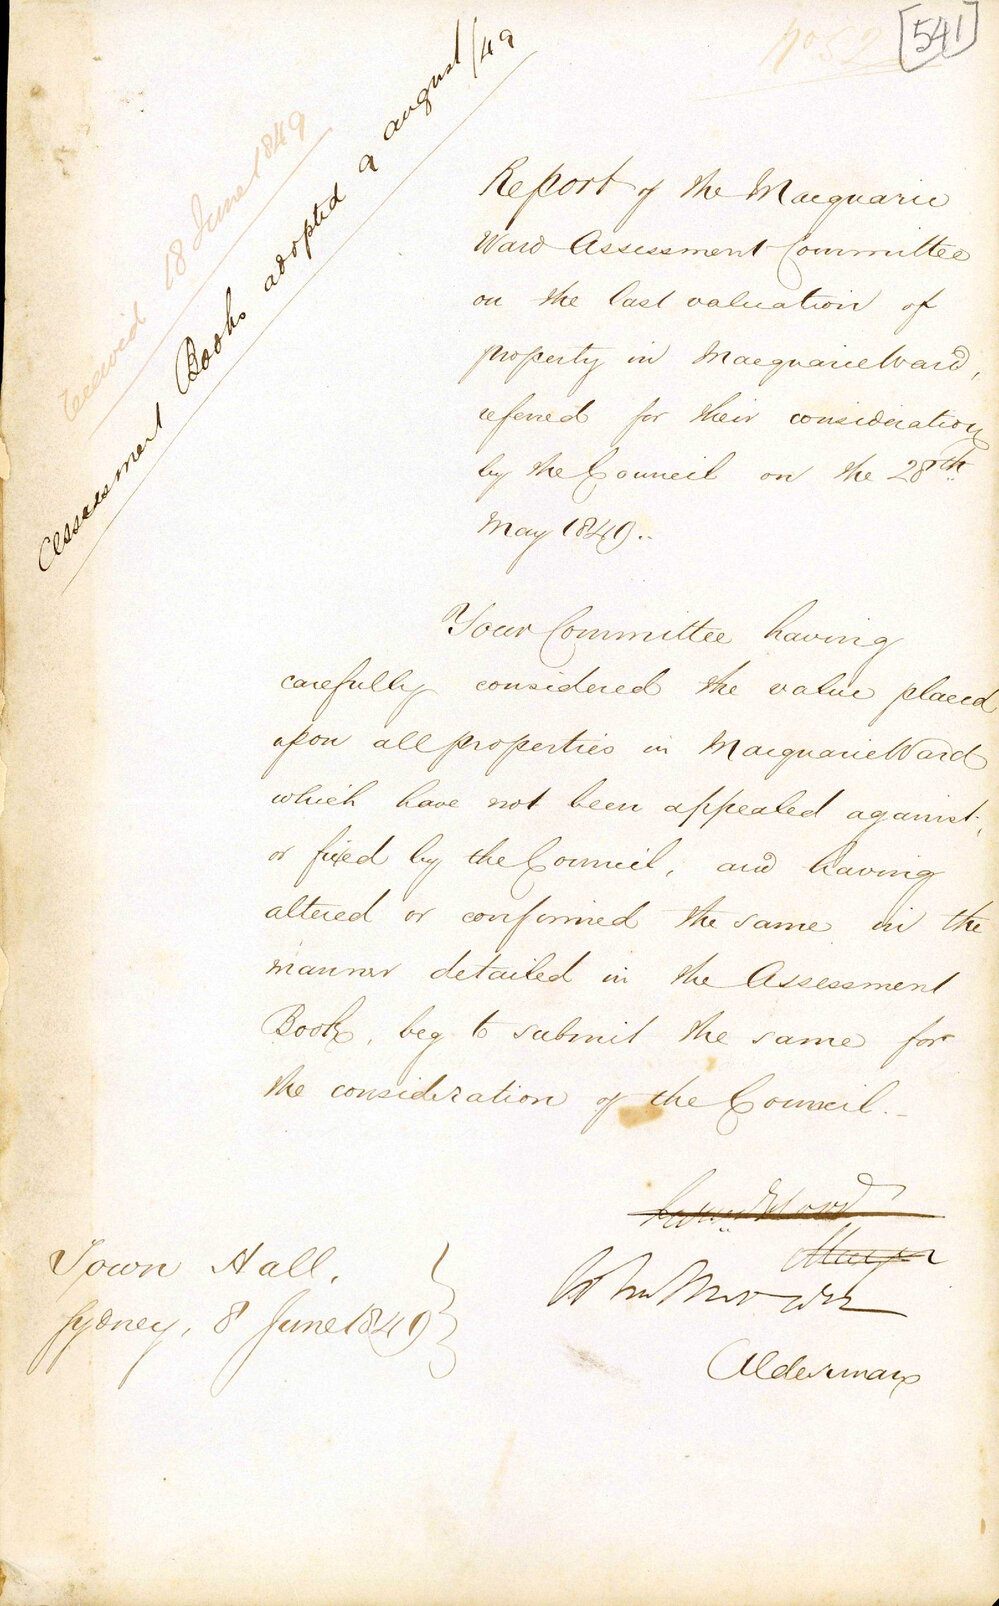 No 52
[541]
received 18 June 1849
Assessment Books adopted 9 august/49
Report of the Macquarie
Ward Assessment Committee
on the last valuation of
property in Macquarie Ward,
referred for their consideration
by the Council on the 28th
May 1849..
Your Committee having
carefully considered the value placed
upon all properties in Macquarie Ward
which have not been appealed against,
or fixed by the Council, and having
altered or confirmed the same in the
manner detailed in the Assessment
Book, beg to submit the same for
the consideration of the Council.
Mayor
Alderman
Town Hall,
Sydney, 8 June 1849